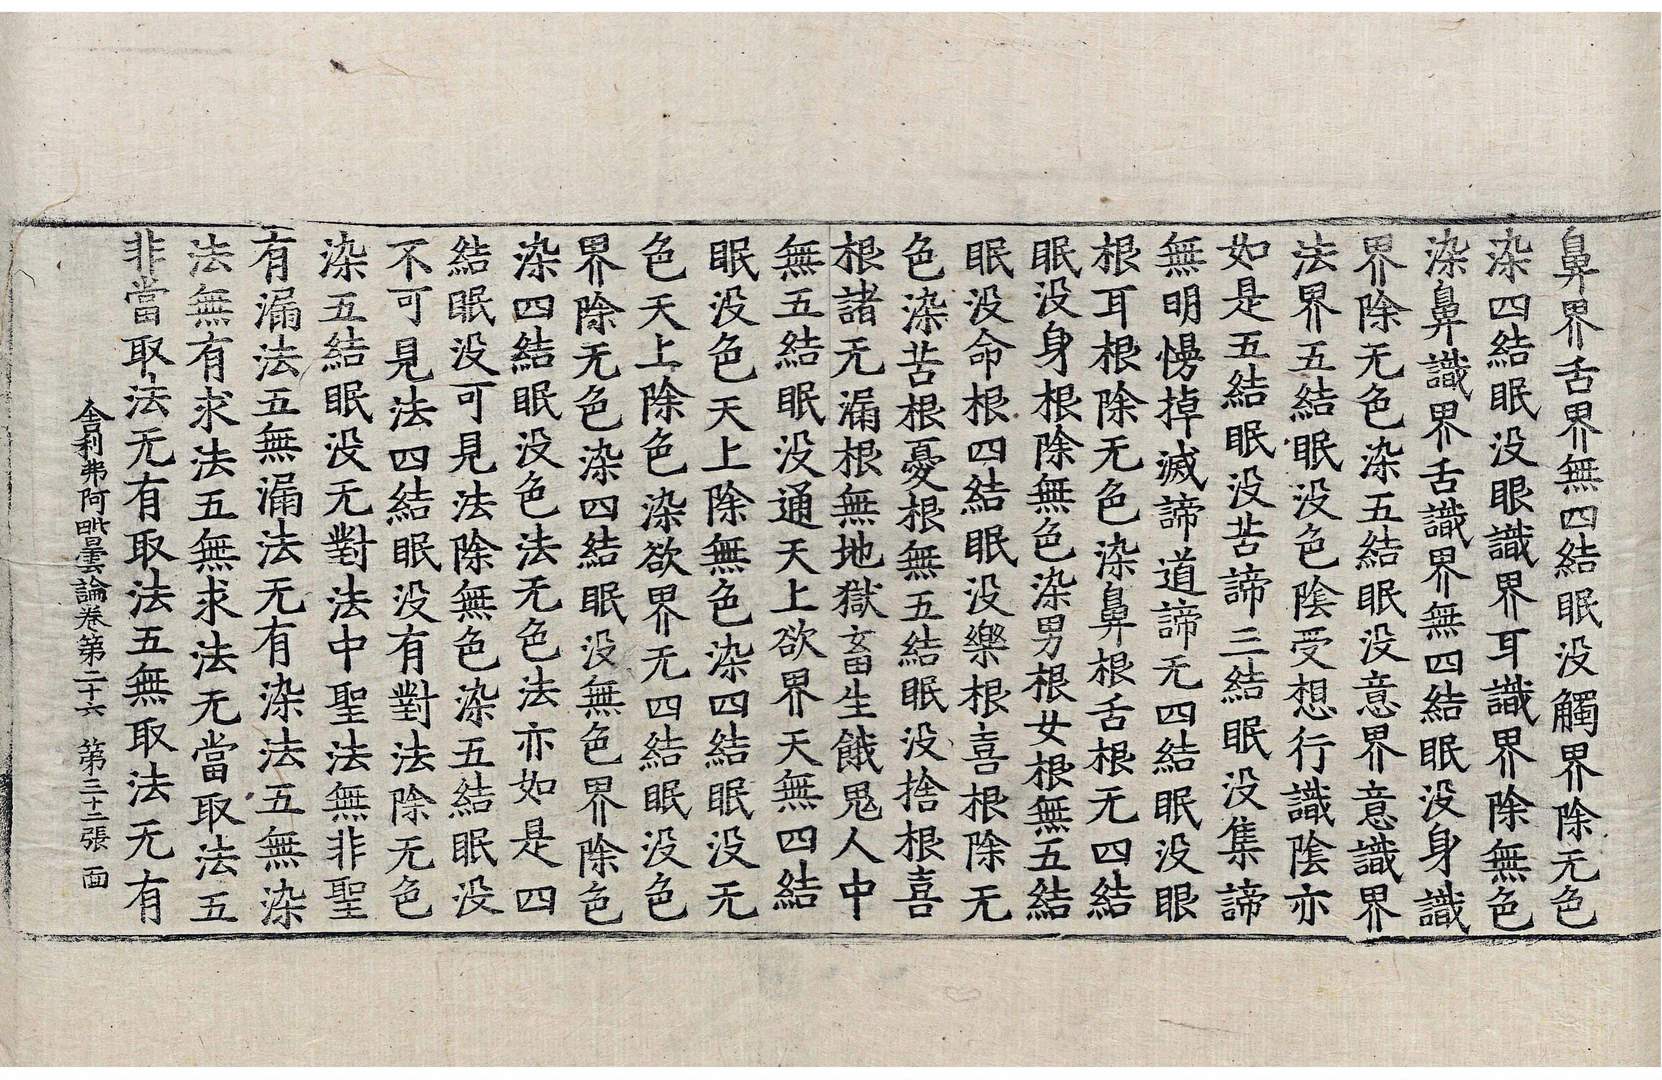 鼻界舌界無四結眠没觸界除无色
染四結眠没眼識界耳識界除無色
染鼻識界舌識界無四結眠没身識
界除无色染五結眠没意界意識界
法界五結眠没色陰受想行識陰亦
如是五結眠没苦諦三結眠没集諦
無明慢掉滅諦道諦无四結眠没眼
根耳根除无色染鼻根舌根无四結
眠没身根除無色染男根女根無五結
眠没命根四結眠没樂根喜根除无
色染苦根憂根無五結眠没捨根喜
根諸无漏根無地獄畜生餓鬼人中
無五結眠没通天上欲界天無四結
眠没色天上除無色染四結眠没无
色天上除色染欲界无四結眠没色
界除无色染四結眠没無色界除色
染四結眠没色法无色法亦如是四
結眠没可見法除無色染五結眠没
不可見法四結眠没有對法除无色
染五結眠没无對法中聖法無非聖
有漏法五無漏法无有染法五無染
法無有求法五無求法无當取法五
非當取法无有取法五無取法无有
舎利弗阿毗曇論卷第二十六 第三十二張 面